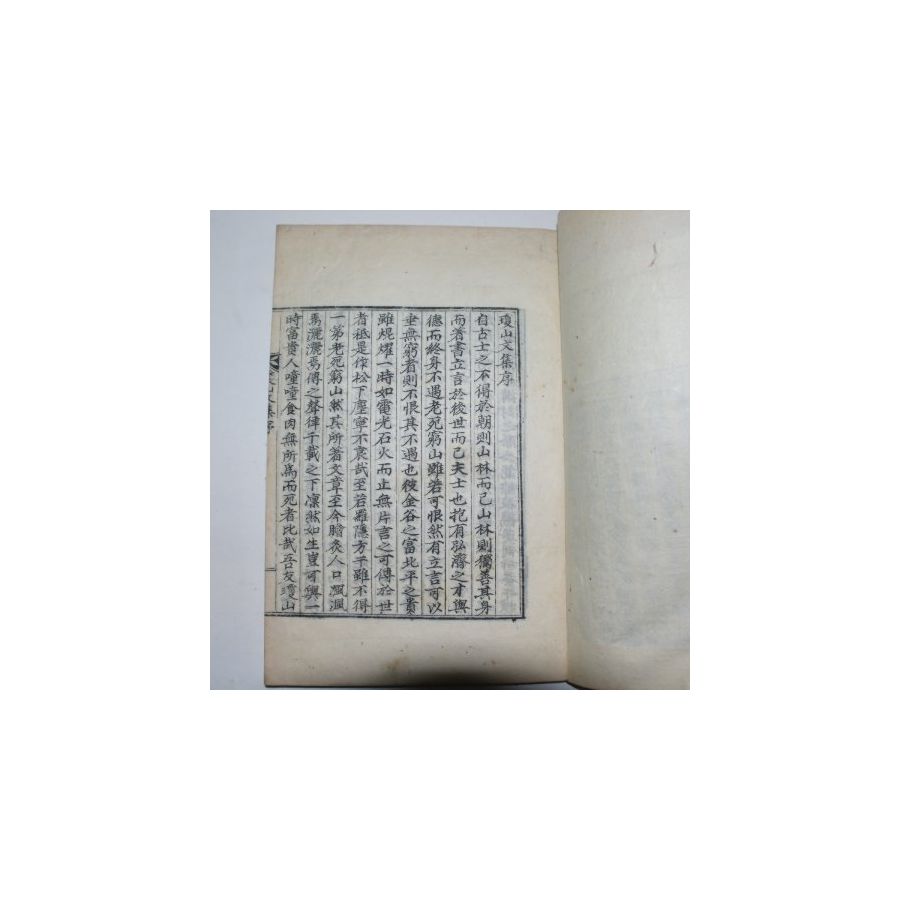 瓊山文集序
自古士之不得於朝則山林而已山林則獨善其身
而著書立言於後世而已夫士也抱有弘濟之才與
德而終身不遇老死窮山雖若可恨然有立言可以
垂無窮者則不恨其不遇也彼金谷之富北平之貴
雖焜燿一時如電光石火而止無片言之可傳於世
者秪是作松下塵寧不哀哉至若羅隱方干雖不得
一第老死窮山然其所著文章至今膾炙人口渢渢
焉灑灑焉傳之聲律千載之下凜然如生豈可與一
時富貴人噇噇食肉無所爲而死者比哉吾友瓊山
山文集序